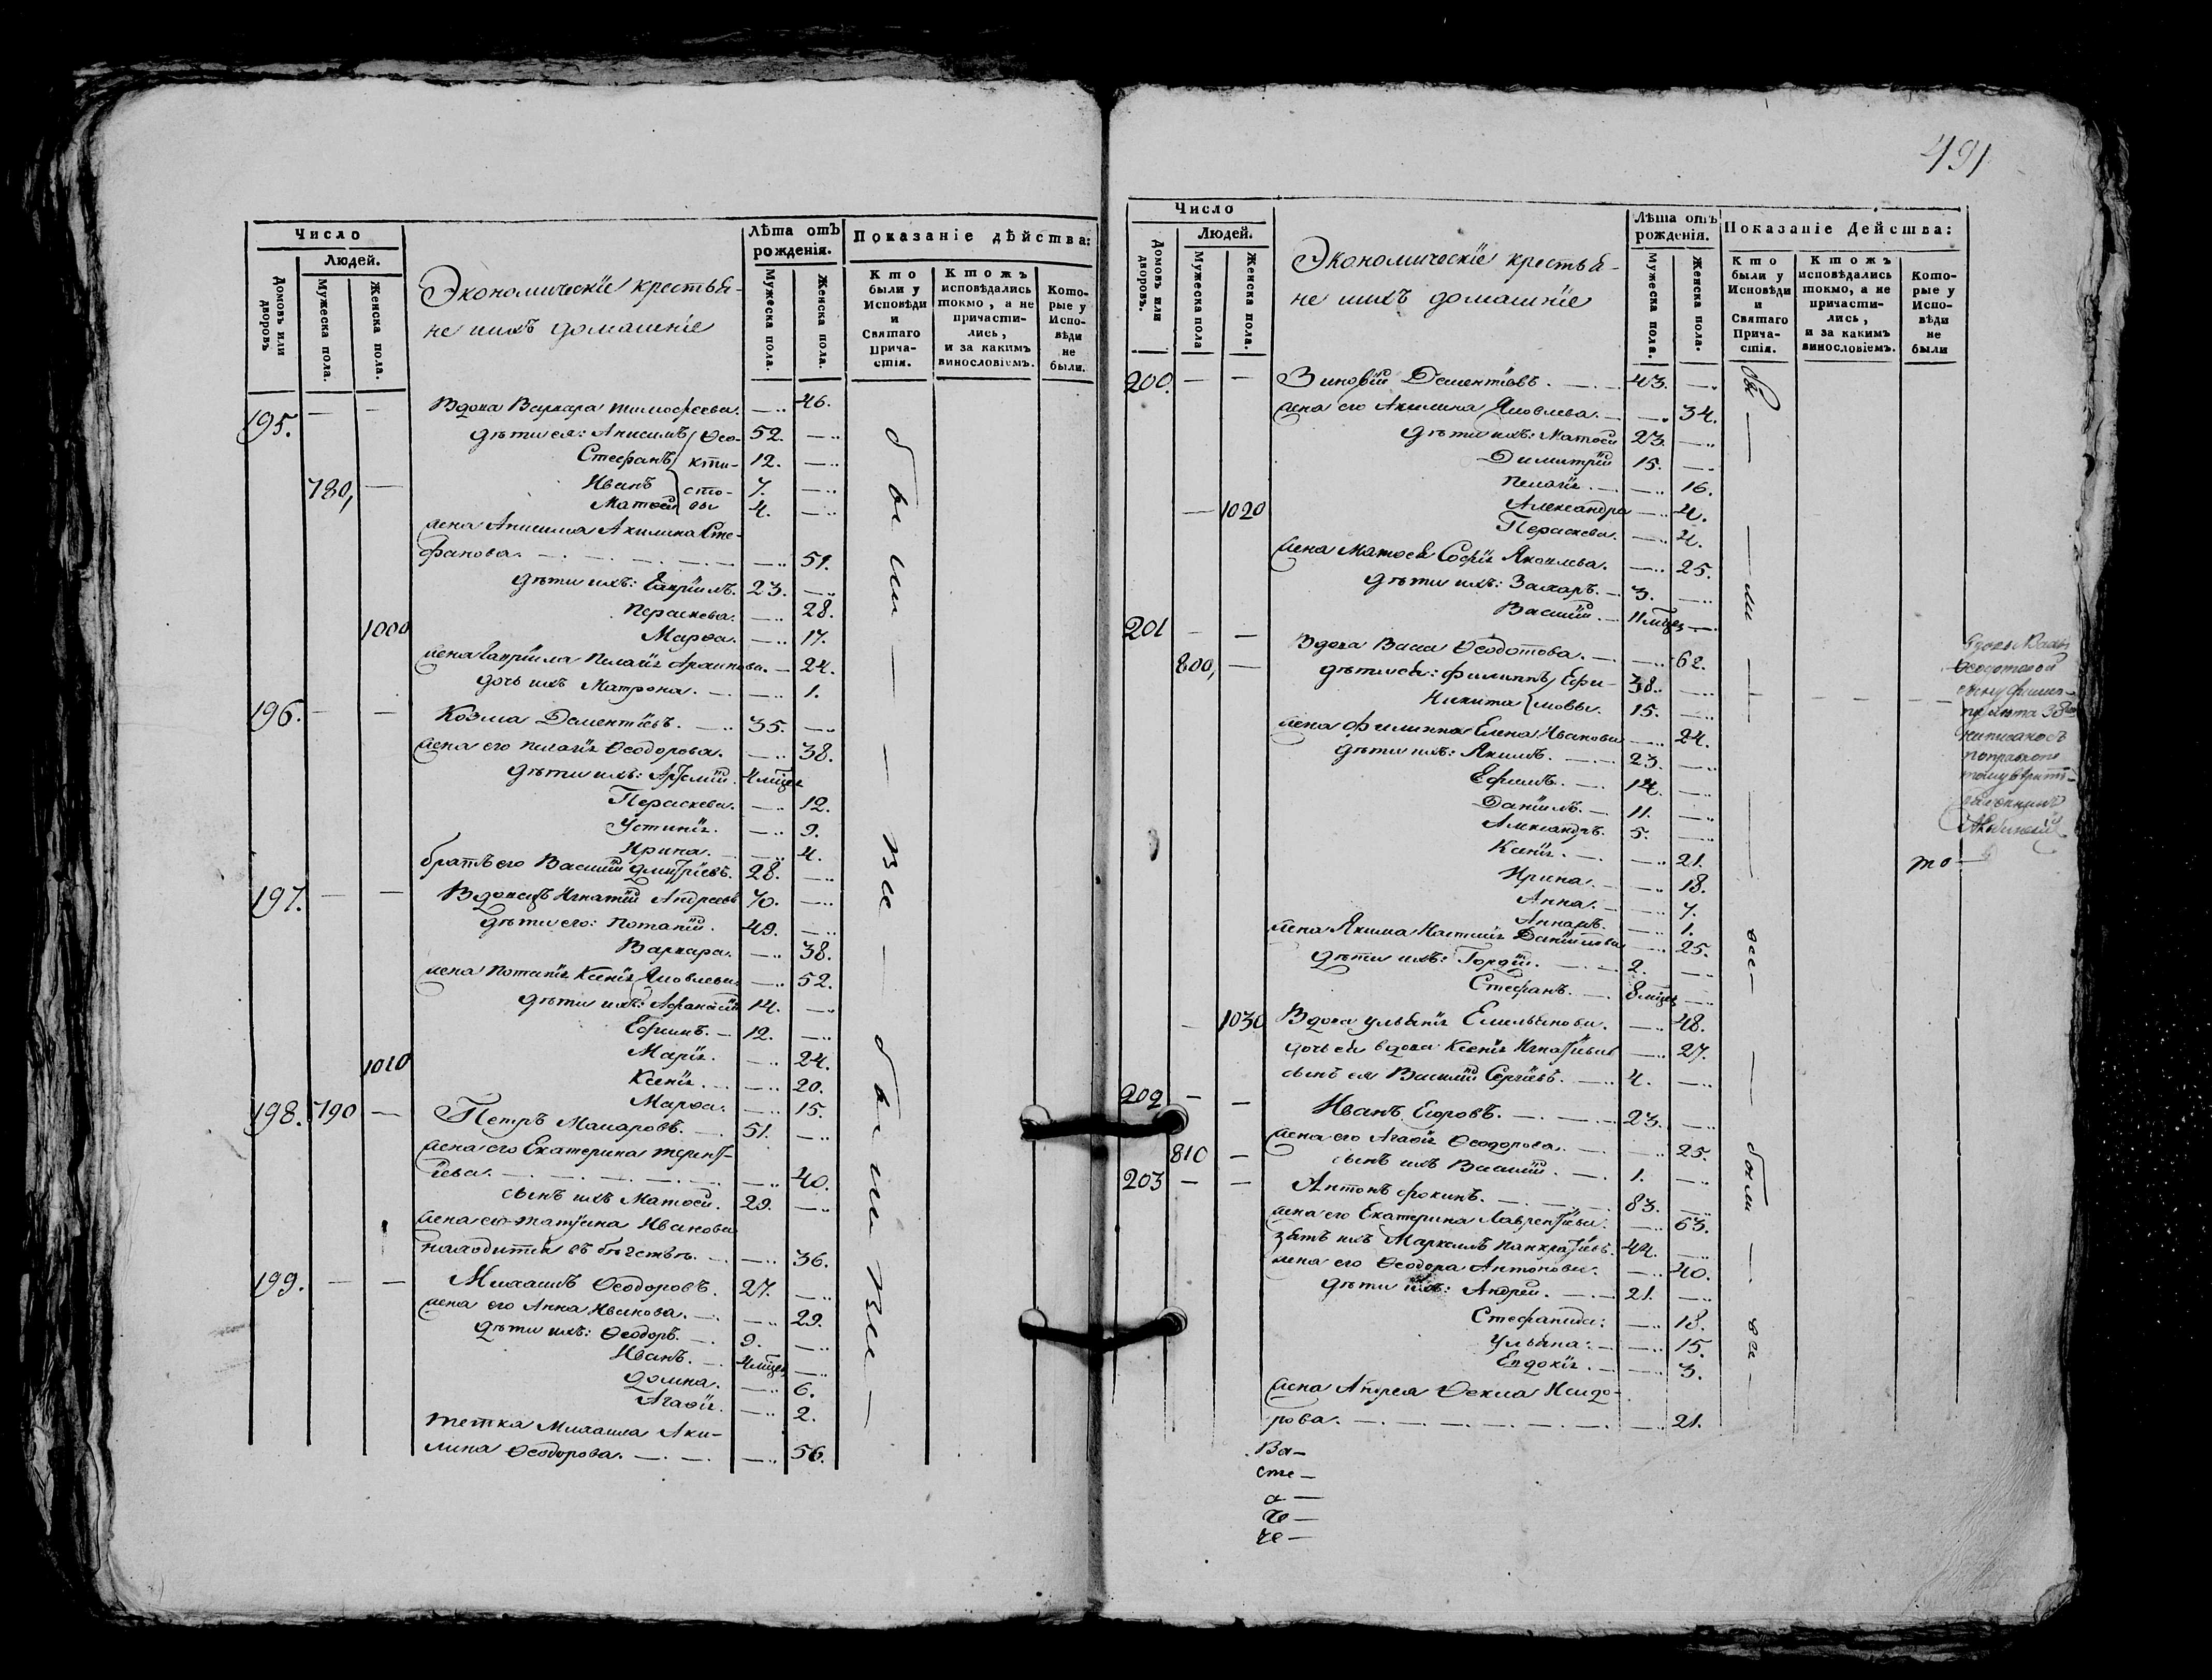 Число
Людей.
Домовъ или дворовъ
Мужеска пола.
Женска пола.
Экономическіе крестья-
не ихъ домашніе
Лѣта отъ рожденія.
Мужеска пола.
Женска пола.
Показаніе дѣйства:
Кто были у Исповѣди и Святаго Прича-стія.
Ктожъ исповѣдались токмо, а не причасти-лись, и за какимъ винословіемъ.
Кото-рые у Испо-вѣди не были.
195. — — Вдова Варвара Тимофеева. — 46.
дѣти ея: Анисимъ Ѳео- 52. —
Стефанъ кти- 12. —
780, — Иванъ сто- 7. —
Матѳей вы 4. —
жена Анисима Акилина Сте-
фанова. — 51.
дѣти ихъ: Гавріилъ. 23. —
Параскева. — 28.
1000 Марѳа. — 17.
жена Гавріила Пелагія Архипова. — 24.
дочь ихъ Матрона. — 1.
196. — — Козма Дементіевъ. 35. —
жена его Пелагія Ѳеодорова. — 38.
дѣти ихъ: Артемій. 4 мцев
Параскева. — 12.
Устинія. — 9.
Ирина. — 4.
братъ его Василій Дмитріевъ. 28. —
197. — — Вдовецъ Игнатій Андреевъ 70. —
дѣти его: Потапій. 49. —
Варвара. — 38.
жена Потапія Ксенія Яковлева — 52.
дѣти ихъ: Афанасій 14. —
Ефимъ. 12. —
1010 Марія. — 24.
Ксенія. — 20.
Марѳа. — 15.
198. 790 — Петръ Макаровъ. 51. —
жена его Екатерина Терент-
іева. — 40.
сынъ ихъ Матѳей. 29. —
жена его Татіана Иванова
находится въ бѣгствѣ. — 36.
199. — — Михаилъ Ѳеодоровъ. 27. —
жена его Анна Иванова. — 29.
дѣти ихъ: Ѳеодоръ. 9. —
Иванъ. 4 мцев —
Домна. — 6.
Агаѳія. — 2.
тетка Михаила Аки-
лина Ѳеодорова. — 56.
были — все — были все —
491
Число
Людей.
Домовъ или дворовъ.
Мужеска пола
Женска пола.
Экономическіе крестья-
не ихъ домашніе
Лѣта отъ рожденія.
Мужеска пола.
Женска пола.
Показаніе Действа:
Кто были у Исповѣди и Святаго Прича-стія.
Ктожъ исповѣдались токмо, а не причасти-лись, и за какимъ винословіемъ.
Кото-рые у Испо-вѣди не были
200. — — Зиновій Дементіевъ. 43. —
жена его Акилина Яковлева. — 34.
дѣти ихъ: Матѳей 23. —
Димитрій 15. —
Пелагія. — 16.
— 1020 Александра — 4.
Параскева. — 4.
жена Матѳея Софія Яковлева. — 25.
дѣти ихъ: Захаръ. 3. —
Василій. 11 мцев —
201 — — Вдова Васса Ѳеодотова. — 62.
800, — дѣти ея: Филиппъ Ефи- 38. —
Никита мовы. 15. —
жена Филиппа Елена Иванова — 24.
дѣти ихъ: Якимъ. 23. —
Ефимъ. 14. —
Даніилъ. 11. —
Александръ. 5. —
Ксенія. — 21.
Ирина. — 18.
Анна. — 7.
Анна — 1.
жена Якима Настасія Даніилова — 25.
дѣти ихъ: Гордій. 2. —
Стефанъ. 8 мцев —
— 1030 Вдова Ульянія Емельянова. — 48.
дочь ея вдова Ксенія Игнатіева — 27.
сынъ ея Василій Сергіевъ. 4. —
202 — — Иванъ Егоровъ. 23. —
жена его Агаѳія Ѳеодорова. — 25.
810 — сынъ ихъ Василій. 1. —
203 — — Антонъ Фокинъ. 83. —
жена его Екатерина Лаврентіева. — 63.
зять ихъ Маркелъ Панкратіевъ. 44. —
жена его Ѳеодора Антонова. — 40.
дѣти ихъ: Андрей. 21. —
Стефанида: — 18.
Ульяна: — 15.
Евдокія. — 3.
жена Андрея Ѳекла Исидо-
рова. — 21.
бы — ли — все — были — все —
вдовы Вассы
Ѳеодотовой
сыну Филип-
пу лета 38
то —
Ва—
сте —
а —
че —